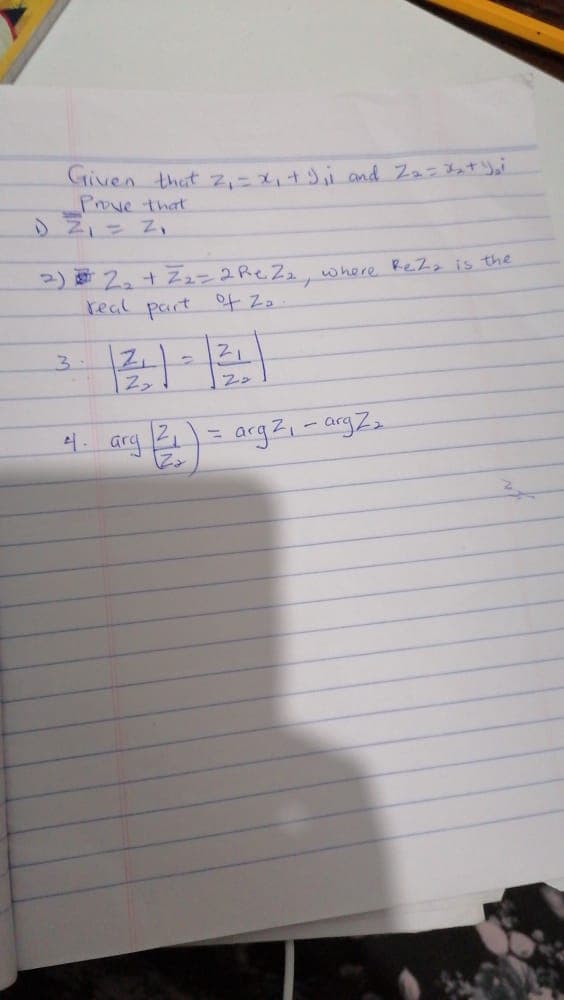 Given that z₁ = x₁ + y₁i and Z₂ = x₂ + y₂i
Prove that
1) z̿₁ = Z₁
2) Z₂ + Z̄₂ = 2 Re Z₂, where Re Z₂ is the
real part of Z₂.
3. |Z₁/Z₂| = |Z₁/Z₂|
4. arg (Z₁/Z₂) = arg Z₁ - arg Z₂